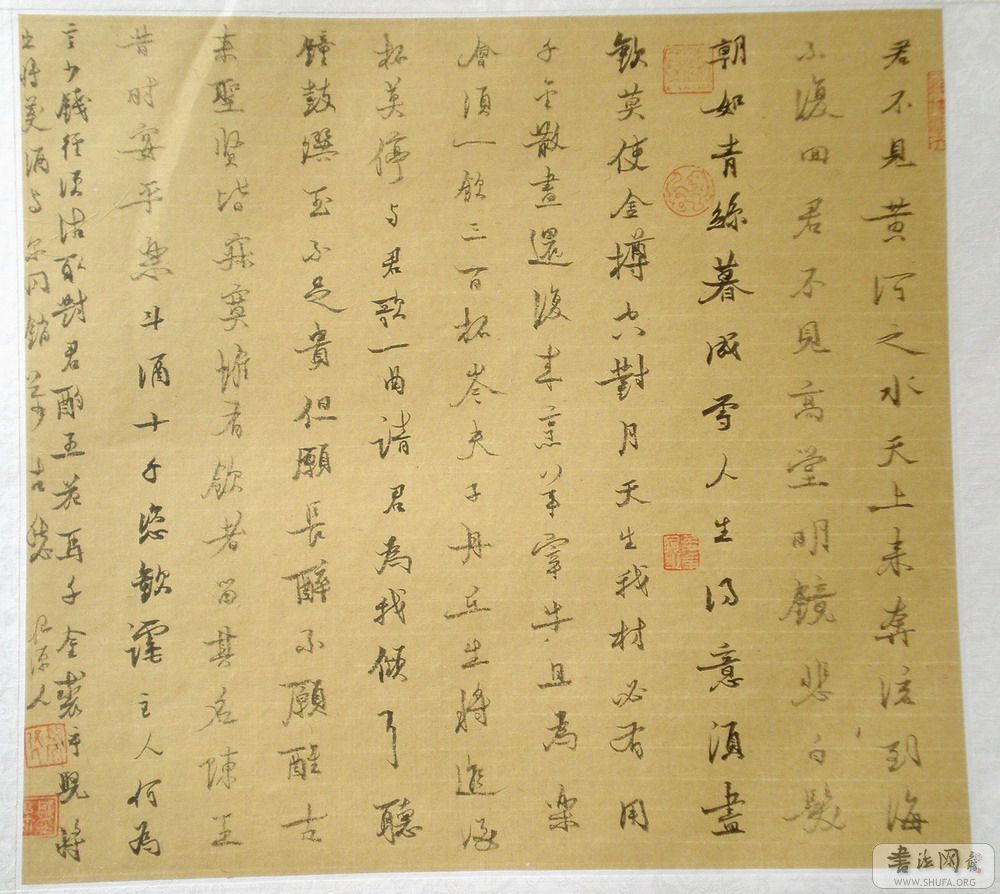 君不見黄河之水天上来奔流到海
不復回君不見高堂明鏡悲白髮
朝如青絲暮成雪人生得意須盡
歡莫使金樽空對月天生我材必有用
千金散盡還復来烹羊宰牛且為樂
會須一飲三百杯岑夫子丹丘生將進酒
杯莫停与君歌一曲請君為我傾耳聽
鐘鼓饌玉不足貴但願長醉不願醒古
来聖賢皆寂寞惟有飲者留其名陳王
昔時宴平樂斗酒十千恣歡謔主人何為
言少錢徑須沽取對君酌五花馬千金裘呼兒將
出將美酒与尔同銷萬古愁
書法网
WWW.SHUFA.ORG